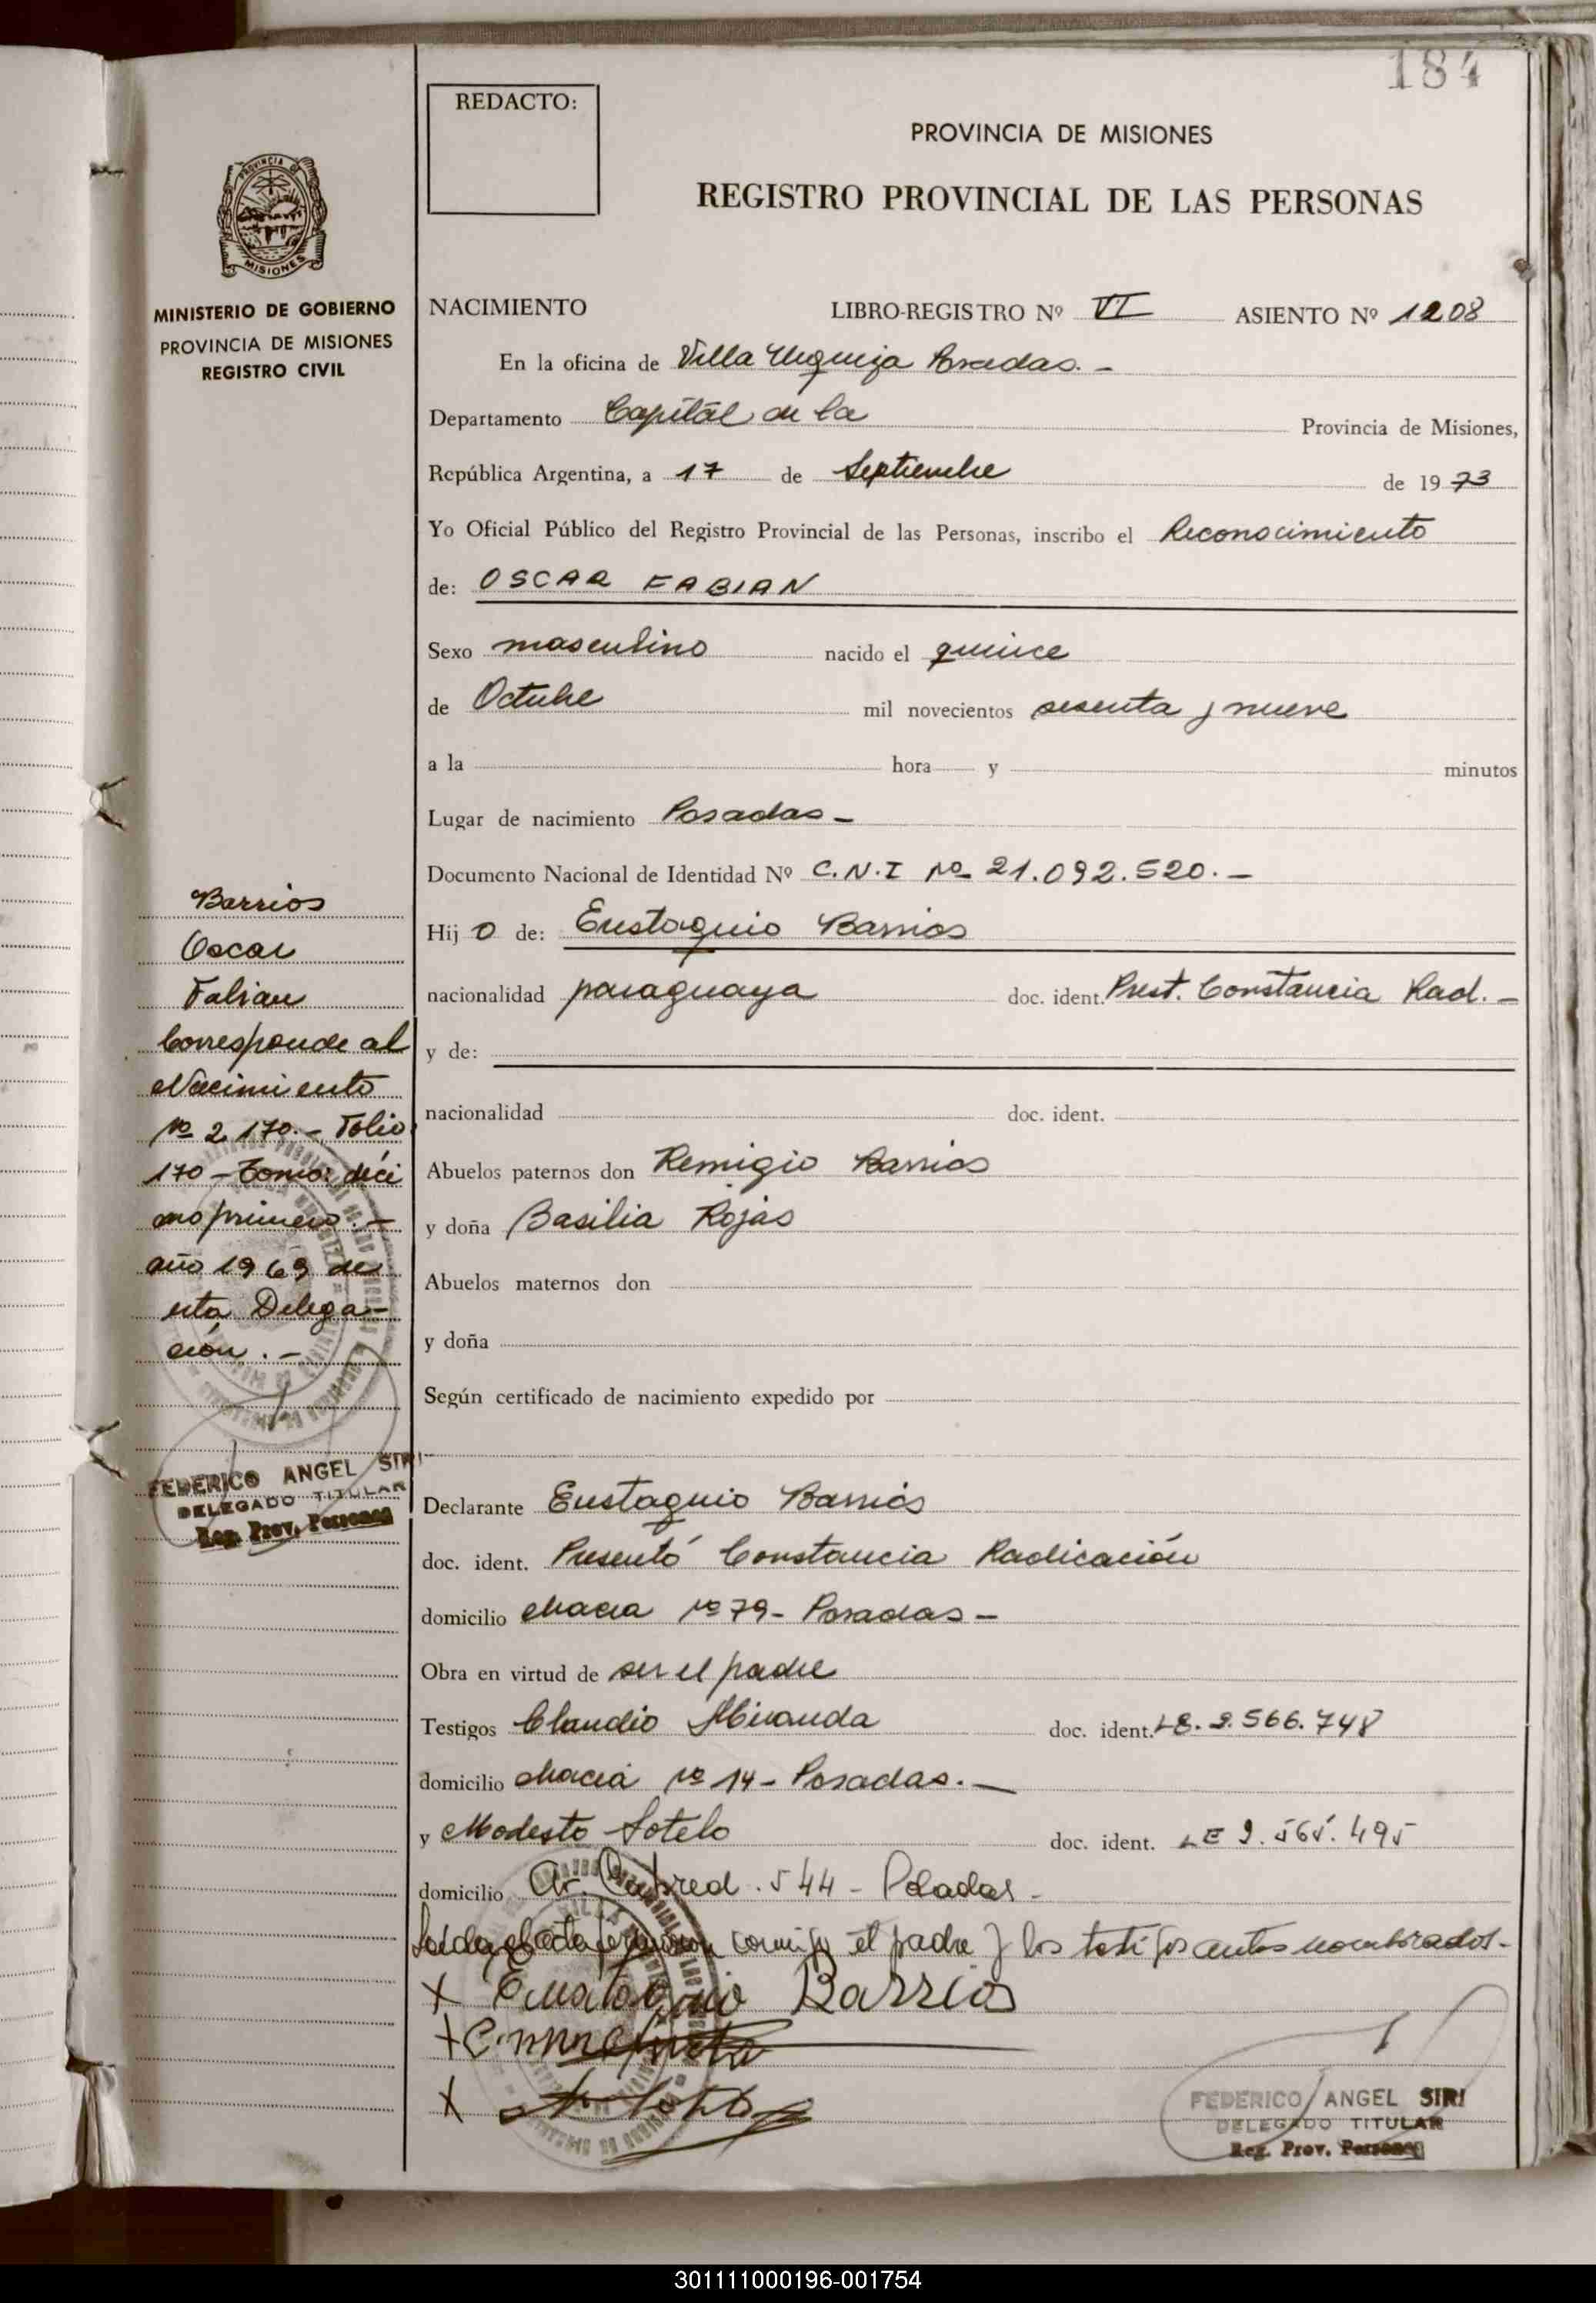 184
REDACTO:
PROVINCIA DE MISIONES
REGISTRO PROVINCIAL DE LAS PERSONAS
PROVINCIA
MISIONES
MINISTERIO DE GOBIERNO
PROVINCIA DE MISIONES
REGISTRO CIVIL
NACIMIENTO LIBRO-REGISTRO Nº VI ASIENTO Nº 1208
En la oficina de Villa Urquiza Posadas. -
Departamento Capital de la Provincia de Misiones,
República Argentina, a 17 de Septiembre de 1973
Yo Oficial Público del Registro Provincial de las Personas, inscribo el Reconocimiento
de: OSCAR FABIAN
Sexo masculino nacido el quince
de Octubre mil novecientos sesenta y nueve
a la hora y minutos
Lugar de nacimiento Posadas -
Documento Nacional de Identidad Nº C.N.I Nº 21.092.520. -
Hijo de: Eustaquio Barrios
nacionalidad paraguaya doc. ident. Prest. Constancia Rad. -
y de:
nacionalidad doc. ident.
Abuelos paternos don Remigio Barrios
y doña Basilia Rojas
Abuelos maternos don
y doña
Según certificado de nacimiento expedido por
Declarante Eustaquio Barrios
doc. ident. Presentó Constancia Radicación
domicilio chacra Nº 79 - Posadas -
Obra en virtud de ser el padre
Testigos Claudio Miranda doc. ident. LE. 2.566.748
domicilio chacra Nº 14 - Posadas. -
y Modesto Sotelo doc. ident. LE 2.565.495
domicilio Av. Cabred. 544 - Posadas -
Leída el acta firman conmigo el padre y los testigos antes nombrados. -
x Eustaquio Barrios
x
x
FEDERICO ANGEL SIRI
DELEGADO TITULAR
Reg. Prov. Personas
Barrios
Oscar
Fabian
Corresponde al
Nacimiento
Nº 2.170. - Folio
170 - Tomo: déci
mo primero. -
año 1969 de
esta Delega-
ción. -
FEDERICO ANGEL SIRI
DELEGADO TITULAR
Reg. Prov. Personas
301111000196-001754